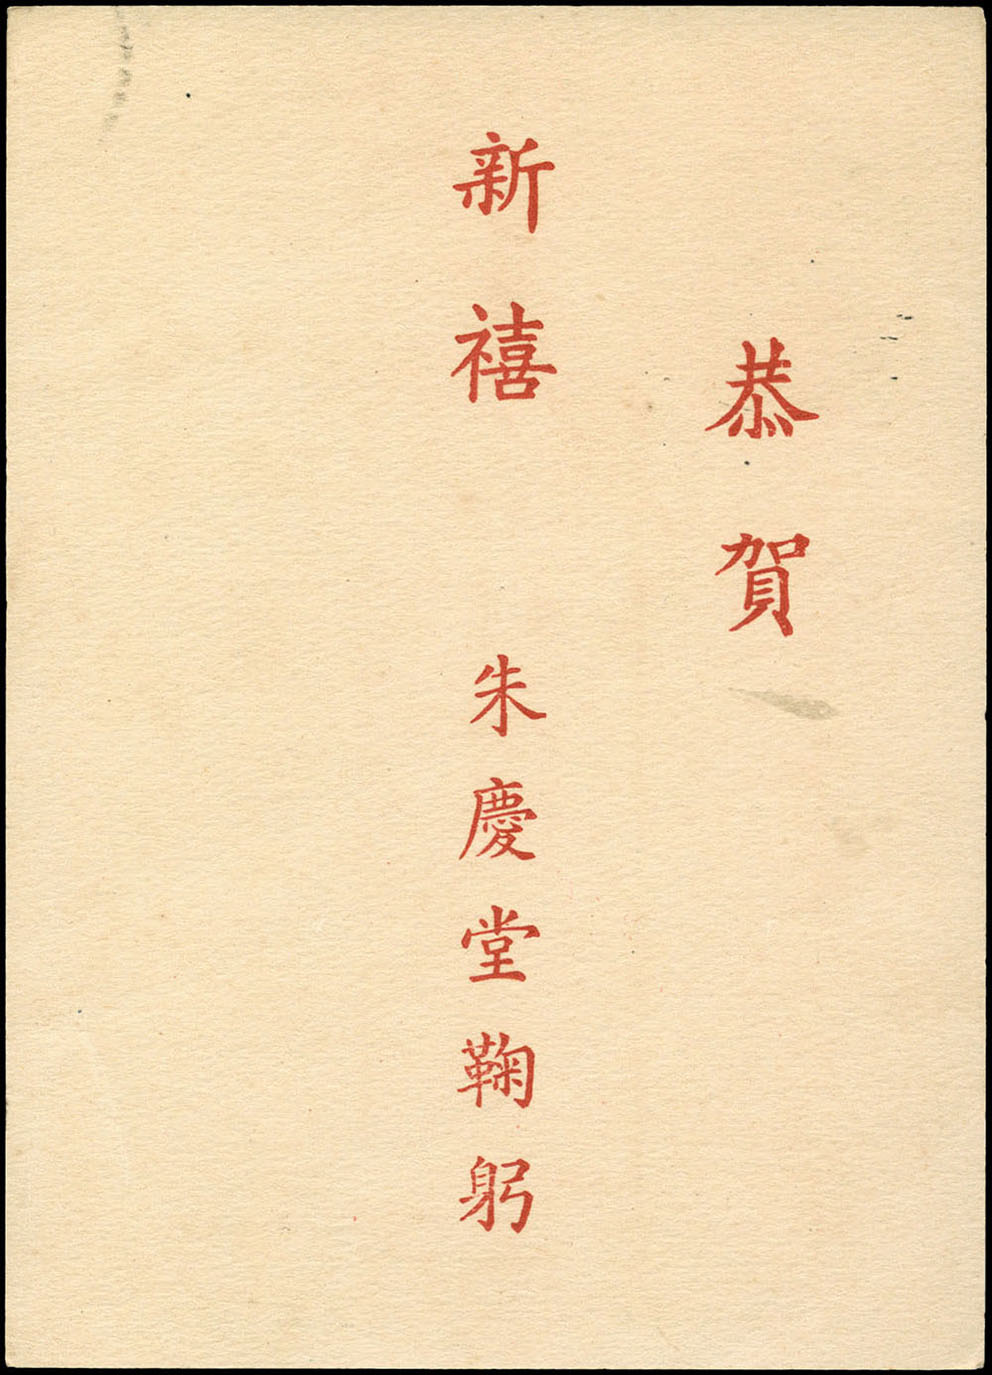 恭賀
新禧 朱慶堂鞠躬